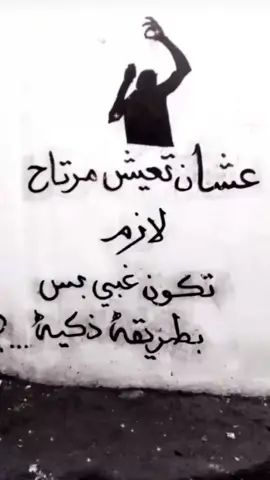 عشان تعيش مرتاح
لازم
تكون غبي بس
بطريقة ذكية....